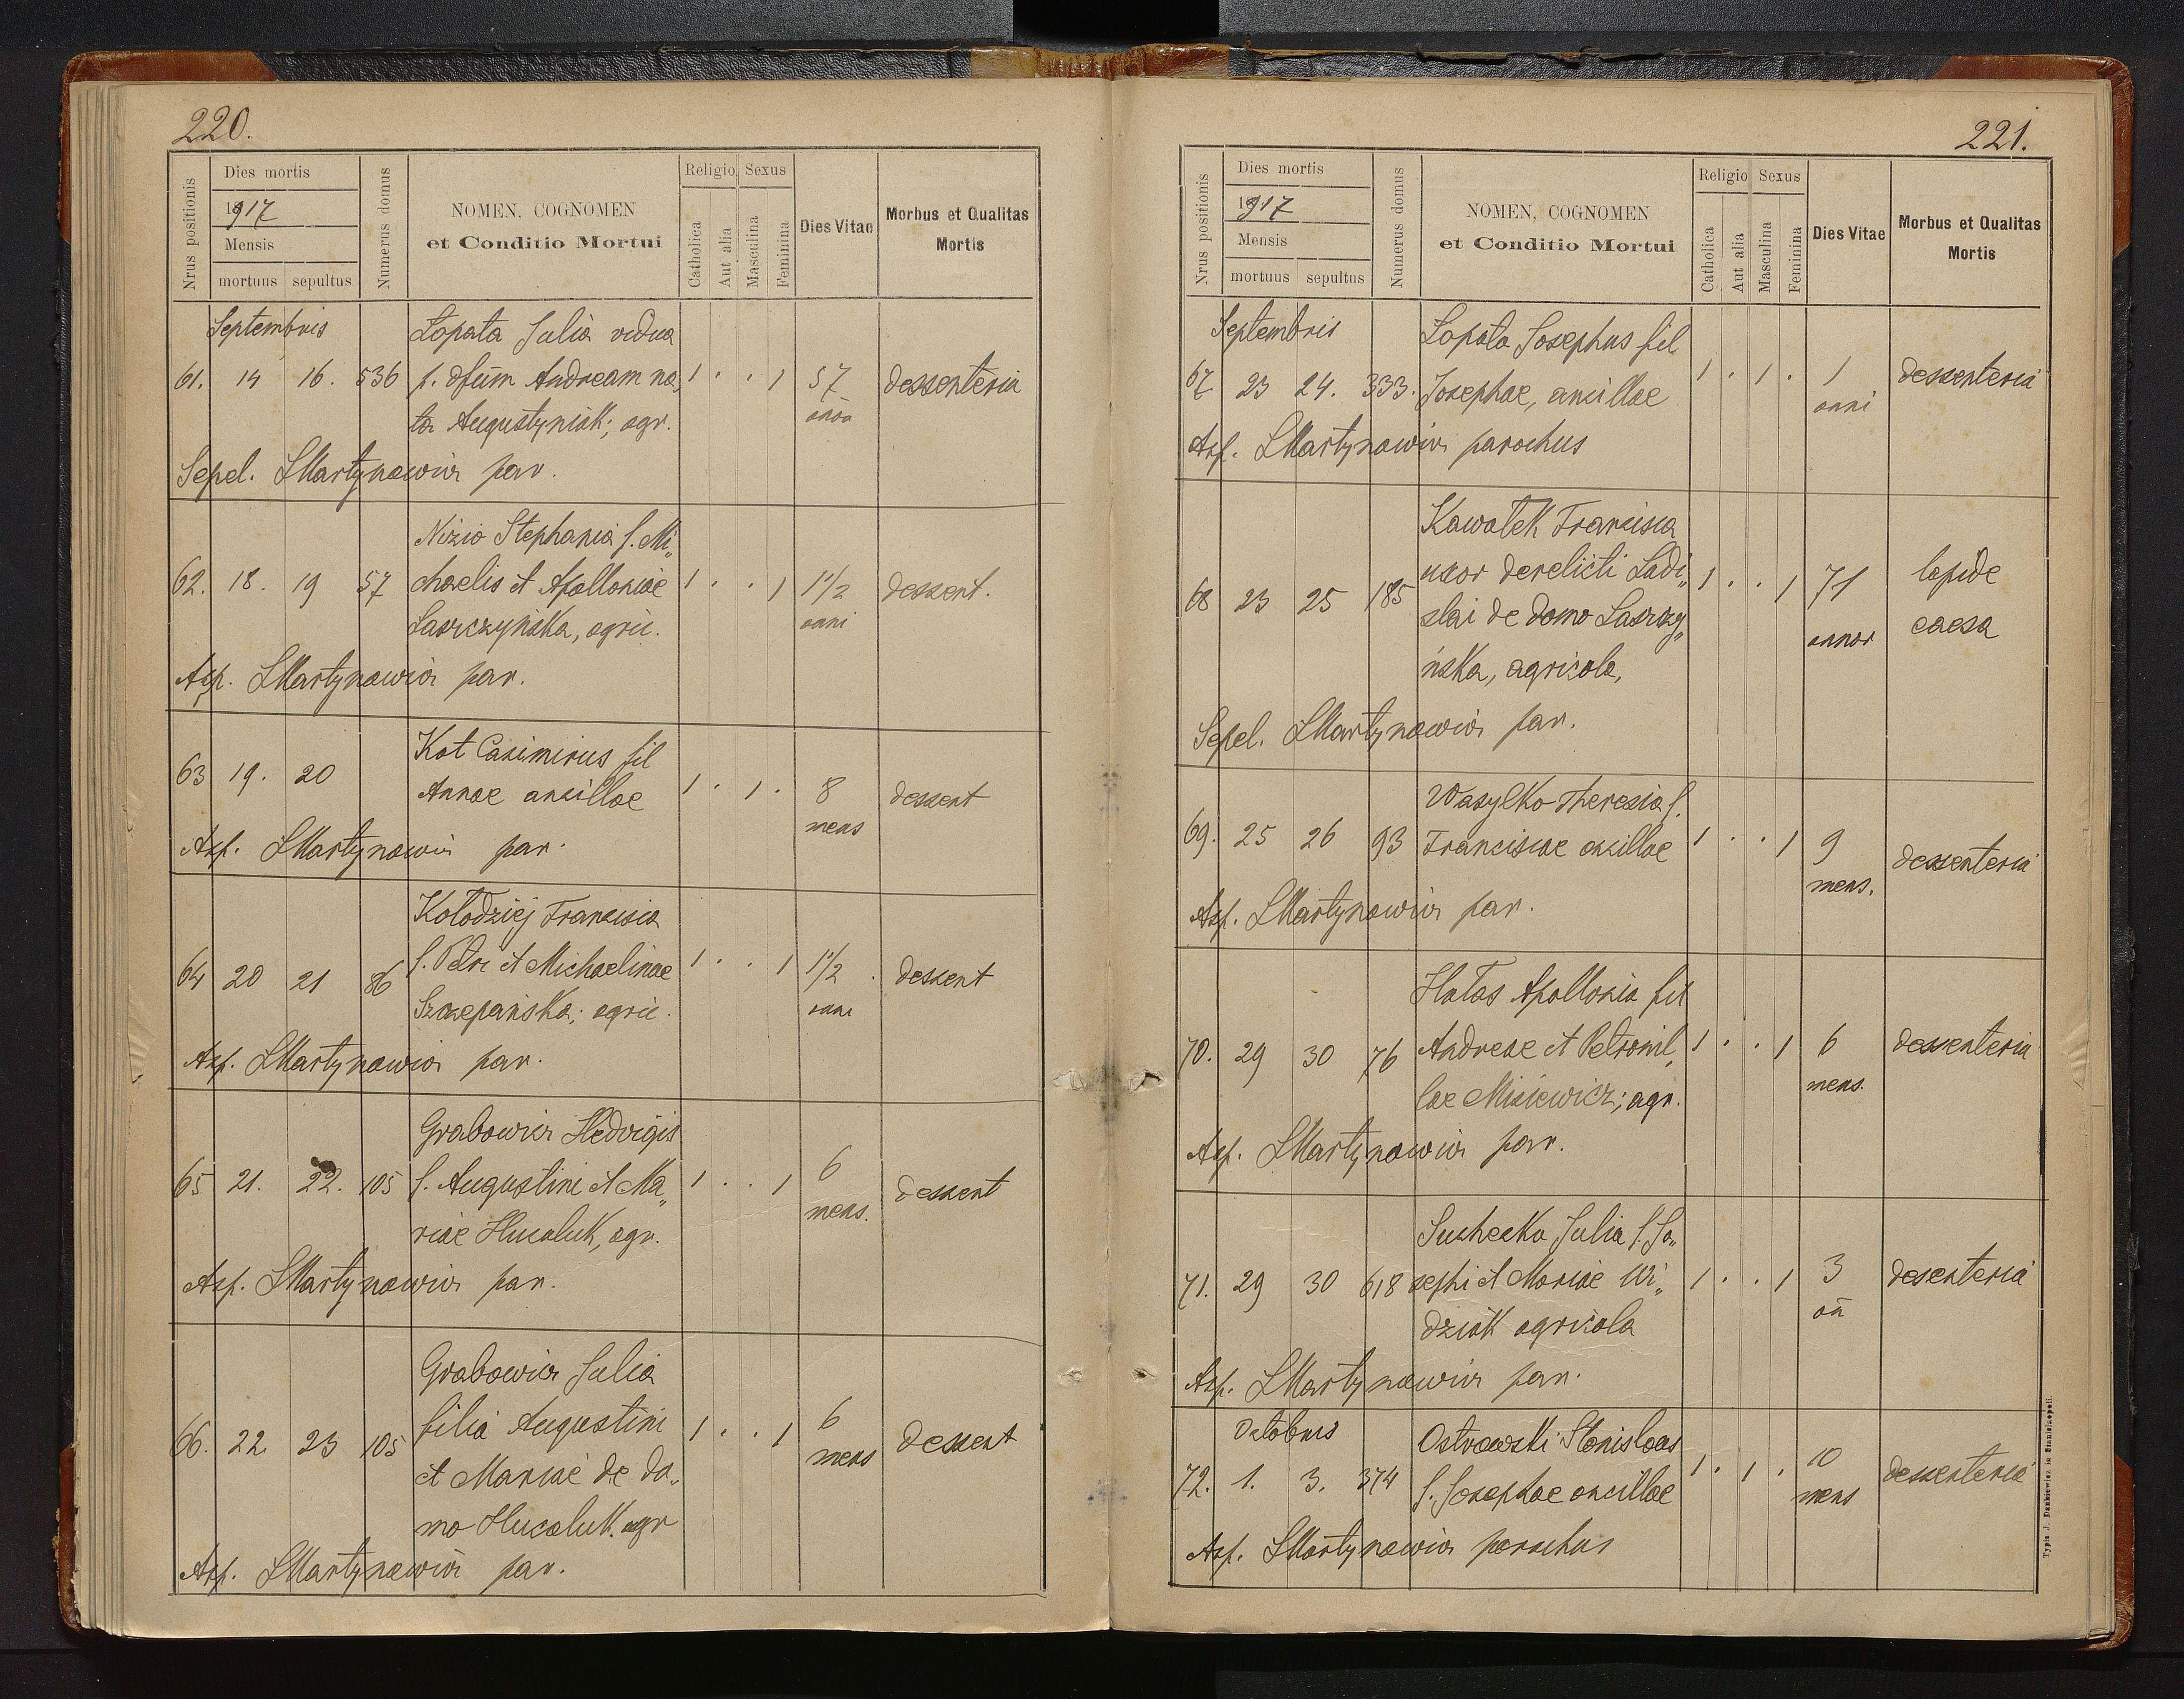 220.
Nrus positionis
Dies mortis
1917
Mensis
mortuus sepultus
Numerus domus
NOMEN, COGNOMEN
et Conditio Mortui
Religio Sexus
Catholica
Aut alia
Masculina
Feminina
Dies Vitae
Morbus et Qualitas
Mortis
Septembris Łopata Julia vidua
61. 14 16. 536 p. dfüm Andream na„ 1 . . 1 57 dessenteria
ta Augustyniak; agr.
Sepel. LMartynowicz par.
Nizio Stephania f. Mi„
62. 18. 19 57 chaelis et Apolloniae 1 . . 1 1 1/2 dessent.
Laszczyńska, agric. anni
Asp. LMartynowicz par.
Kot Casimirus fil
63 19. 20 Annae ancillae 1 . 1 . 8 dessent
mens
Asp. LMartynowicz par.
Kołodziej Francisca
64 20 21 86 f. Petri et Michaelinae 1 . . 1 1 1/2 dessent
Szczepańska; agric. anni
Asp. LMartynowicz par.
Grabowicz Hedvigis
65 21. 22. 105 f. Augustini et Ma„ 1 . . 1 6 dessent
riae Hucaluk, agr. mens.
Asp. LMartynowicz par.
Grabowicz Julia
66. 22 23 105 filia Augustini 1 . . 1 6 dessent
et Mariae de do„ mens
mo Hucaluk. agr
Asp. LMartynowicz par.
221.
Nrus positionis
Dies mortis
1917
Mensis
mortuus sepultus
Numerus domus
NOMEN, COGNOMEN
et Conditio Mortui
Religio Sexus
Catholica
Aut alia
Masculina
Feminina
Dies Vitae
Morbus et Qualitas
Mortis
Septembris Łopata Josephus fil
67 23 24. 333. Josephae, ancillae 1 . 1 . 1 dessenteria
anni
Asp. LMartynowicz parochus
Kawałek Francisca
uxor derelicti Ladi„
68 23 25 185 slai de domo Laszczy„ 1 . . 1 71 lapide
ńska, agricola, annor caesa
Sepel. LMartynowicz par.
Wasylko Theresia f.
69. 25 26 93 Franciscae ancillae 1 . . 1 9 dessenteria
mens.
Asp. LMartynowicz par.
Hałas Apollonia fil
70. 29 30 76 Andreae et Petronil„ 1 . . 1 6 dessenteria
lae Misiewicz; agr. mens.
Asp. LMartynowicz par.
Suchecka Julia f. Jo„
71. 29 30 618 sephi et Mariae Wi„ 1 . . 1 3 desenteria
dziak agricola
Asp. LMartynowicz par.
Octobris Ostrowski Stanislaus
72. 1. 3. 374 f. Josephae ancillae 1 . 1 . 10 dessenteria
mens
Asp. LMartynowicz parochus
Typis J. Dankiewicz in Stanislaopoli.